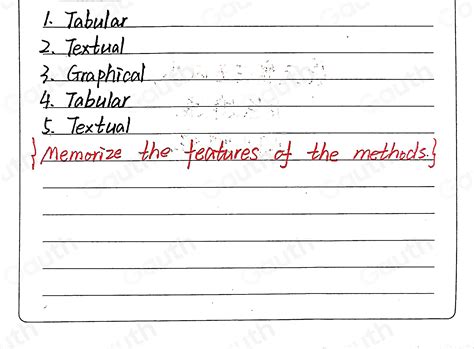 1. Tabular
2. Textual
3. Graphical
4. Tabular
5. Textual
{Memorize the features of the methods.}